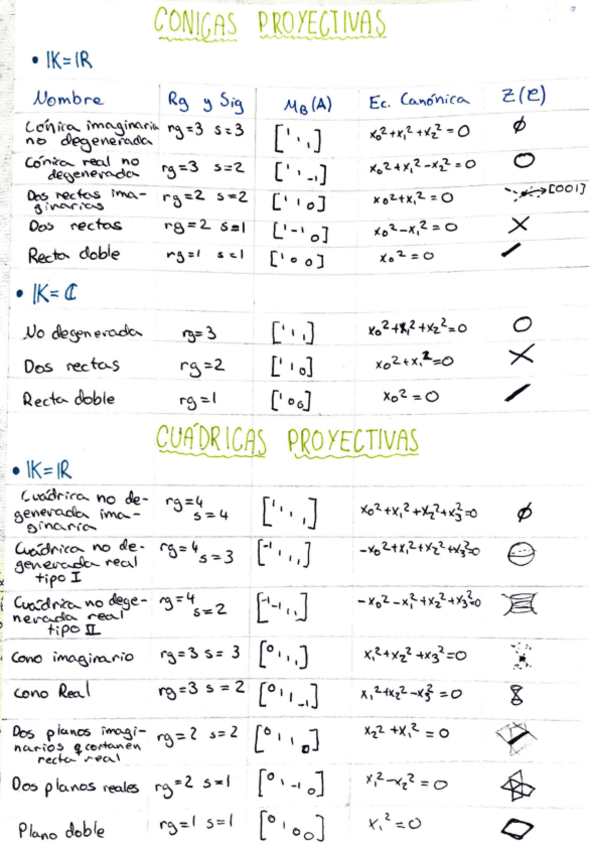 CONICAS PROYECTIVAS
• IK=IR
Nombre Rg y Sig M_B(A) Ec. Canónica Z(C)
Cónica imaginaria no degenerada rg=3 s=3 [1 1 1] x₀²+x₁²+x₂²=0 ∅
Cónica real no degenerada rg=3 s=2 [1 1 -1] x₀²+x₁²-x₂²=0
Dos rectas ima-
ginarias rg=2 s=2 [1 1 0] x₀²+x₁²=0 [001]
Dos rectas rg=2 s=1 [1 -1 0] x₀²-x₁²=0
Recta doble rg=1 s=1 [1 0 0] x₀²=0
• IK=ℂ
No degenerada rg=3 [1 1 1] x₀²+x₁²+x₂²=0
Dos rectas rg=2 [1 1 0] x₀²+x₁²=0
Recta doble rg=1 [1 0 0] x₀²=0
CUÁDRICAS PROYECTIVAS
• IK=IR
Cuádrica no de-
generada ima-
ginaria rg=4 s=4 [1 1 1 1] x₀²+x₁²+x₂²+x₃²=0 ∅
Cuádrica no de-
generada real
tipo I rg=4 s=3 [-1 1 1 1] -x₀²+x₁²+x₂²+x₃²=0
Cuádrica no dege-
nerada real
tipo II rg=4 s=2 [-1 -1 1 1] -x₀²-x₁²+x₂²+x₃²=0
Cono imaginario rg=3 s=3 [0 1 1 1] x₁²+x₂²+x₃²=0
Cono Real rg=3 s=2 [0 1 1 -1] x₁²+x₂²-x₃²=0
Dos planos imagi-
narios q cortan en
recta real rg=2 s=2 [0 1 1 0] x₂²+x₁²=0
Dos planos reales rg=2 s=1 [0 1 -1 0] x₁²-x₂²=0
Plano doble rg=1 s=1 [0 1 0 0] x₁²=0